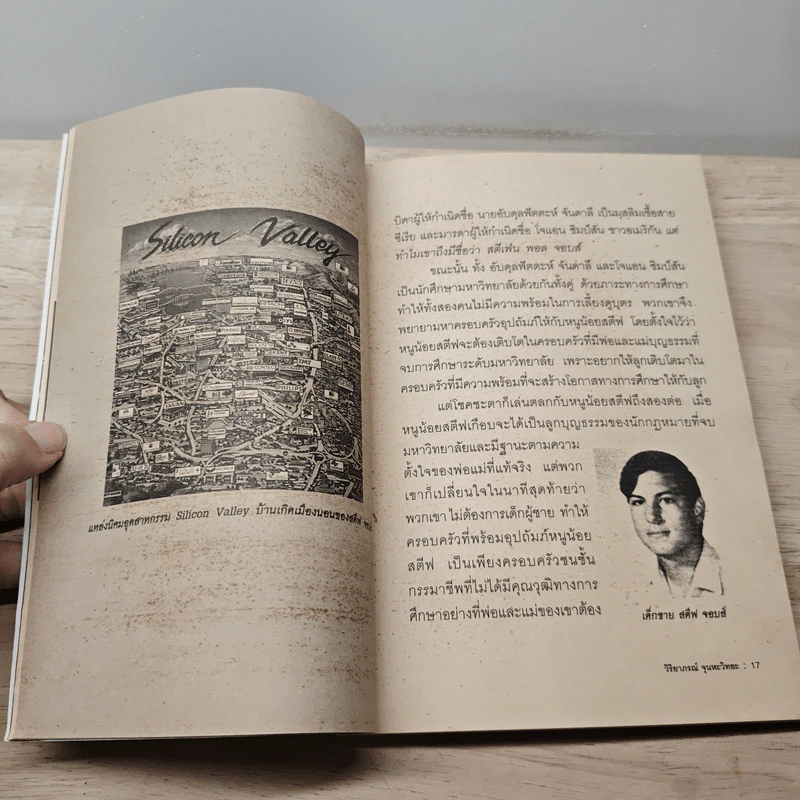 Silicon Valley
แหล่งนิคมอุตสาหกรรม Silicon Valley บ้านเกิดเมืองนอนของสตีฟ จอบส์
บิดาผู้ให้กำเนิดชื่อ นายอับดุลฟัตตะห์ จันดาลี เป็นมุสลิมเชื้อสาย
ซีเรีย และมารดาผู้ให้กำเนิดชื่อ โจแอน ซิมป์สัน ชาวอเมริกัน แต่
ทำไมเขาถึงมีชื่อว่า สตีเฟน พอล จอบส์
ขณะนั้น ทั้ง อับดุลฟัตตะห์ จันดาลี และโจแอน ซิมป์สัน
เป็นนักศึกษามหาวิทยาลัยด้วยกันทั้งคู่ ด้วยภาระทางการศึกษา
ทำให้ทั้งสองคนไม่มีความพร้อมในการเลี้ยงดูบุตร พวกเขาจึง
พยายามหาครอบครัวอุปถัมภ์ให้กับหนูน้อยสตีฟ โดยตั้งใจไว้ว่า
หนูน้อยสตีฟจะต้องเติบโตในครอบครัวที่มีพ่อและแม่บุญธรรมที่
จบการศึกษาระดับมหาวิทยาลัย เพราะอยากให้ลูกเติบโตมาใน
ครอบครัวที่มีความพร้อมที่จะสร้างโอกาสทางการศึกษาให้กับลูก
แต่โชคชะตาก็เล่นตลกกับหนูน้อยสตีฟถึงสองต่อ เมื่อ
หนูน้อยสตีฟเกือบจะได้เป็นลูกบุญธรรมของนักกฎหมายที่จบ
มหาวิทยาลัยและมีฐานะตามความ
ตั้งใจของพ่อแม่ที่แท้จริง แต่พวก
เขาก็เปลี่ยนใจในนาทีสุดท้ายว่า
พวกเขาไม่ต้องการเด็กผู้ชาย ทำให้
ครอบครัวที่พร้อมอุปถัมภ์หนูน้อย
สตีฟ เป็นเพียงครอบครัวชนชั้น
กรรมาชีพที่ไม่ได้มีคุณวุฒิทางการ
ศึกษาอย่างที่พ่อและแม่ของเขาต้อง
เด็กชาย สตีฟ จอบส์
วิริยาภรณ์ จุนหะวิทยะ : 17